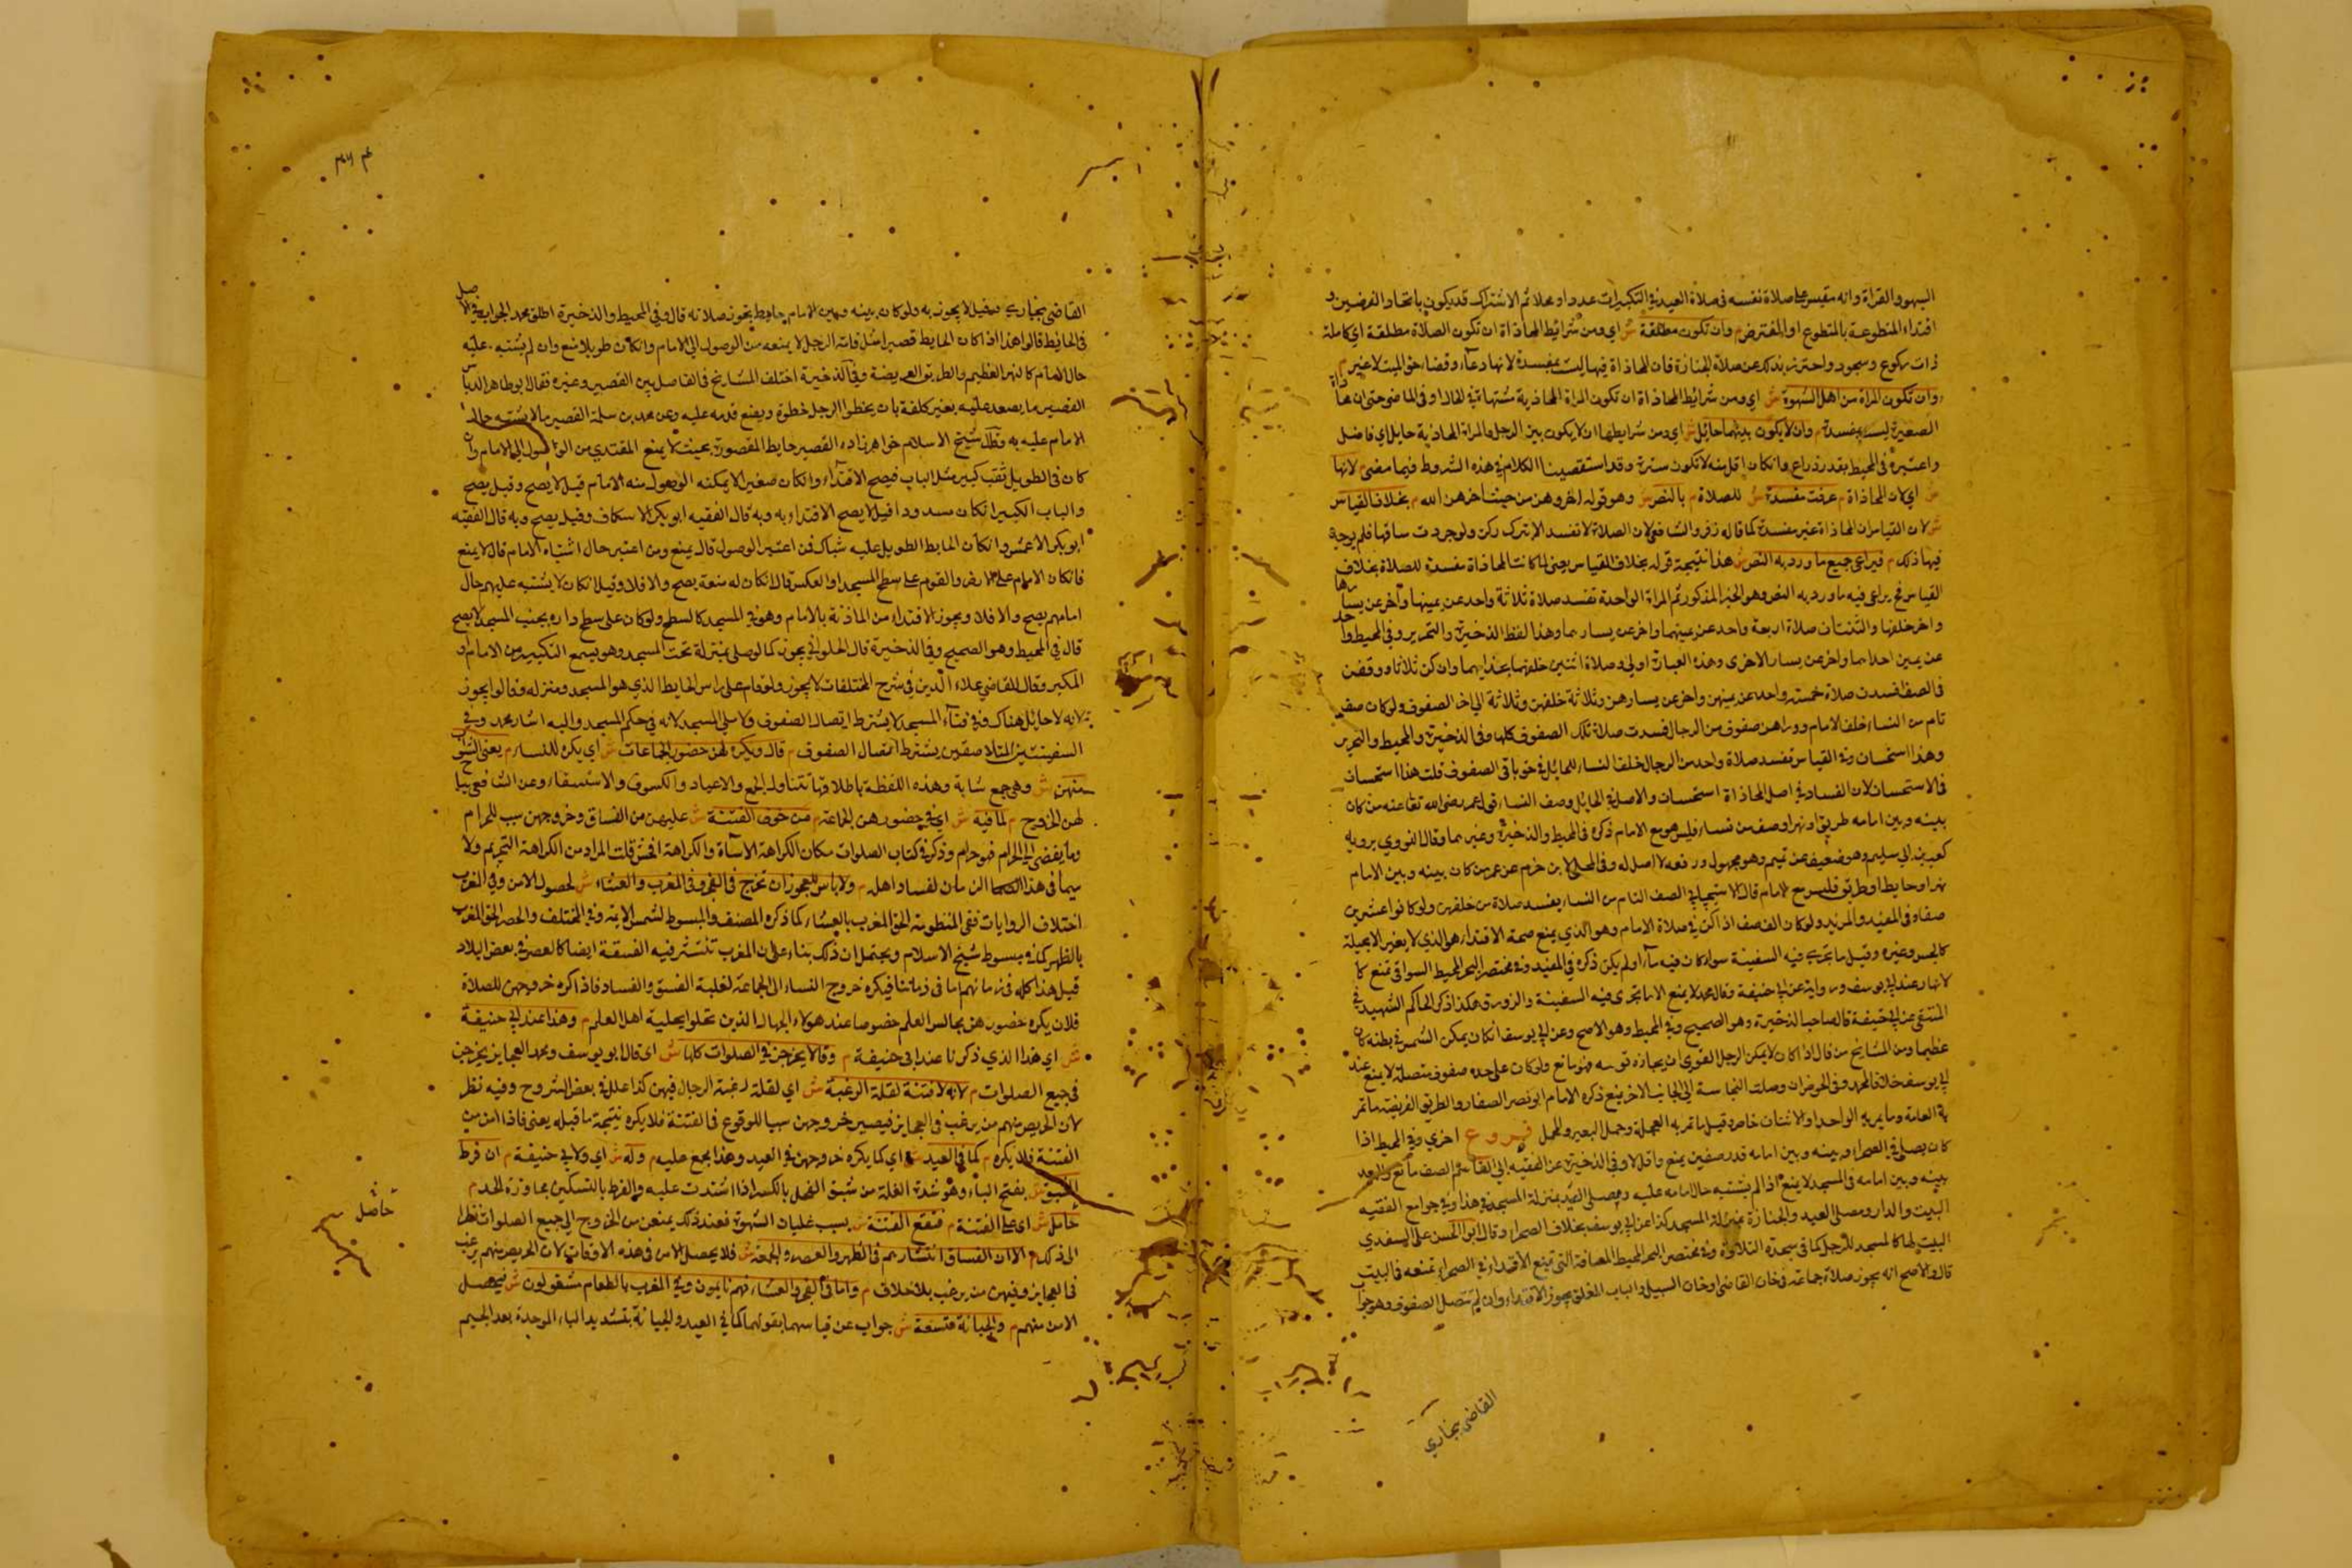 السهو والقراة وانه مقيس على صلاة نفسه في صلاة العيد في التكبيرات عددا ومحلا ثم الاشتراك قد يكون باتحاد الفرضين و
اقتداء المتطوعة بالمتطوع او المفترض م وان تكون مطلقة ش اي ومن شرائط المحاذاة ان تكون الصلاة مطلقة اي كاملة
ذات ركوع وسجود واحترز بذلك عن صلاة الجنازة فان المحاذاة فيها ليست بمفسدة لانها دعاء وقضاء حق الميت لا غير م
وان تكون المراة من اهل الشهوة ش اي ومن شرائط المحاذاة ان تكون المراة المحاذية مشتهاة في الحال او في الماضي حتى ان محاذاة
الصغيرة ليست بمفسدة م وان لا يكون بينهما حائل ش اي ومن شرايطها ان لا يكون بين الرجل والمراة المحاذية حايل اي فاصل
واعتبره في المحيط بقدر ذراع وان كان اقل منه لا تكون سترة وقد استقصينا الكلام في هذه الشروط فيما مضى م لانها
ش اي لان المحاذاة م عرفت مفسدة ش للصلاة م بالنص ش وهو قوله اخروهن من حيث اخرهن الله م بخلاف القياس
ش لان القياس ان المحاذاة غير مفسدة كما قاله زفر والشافعي لان الصلاة لا تفسد الا بترك ركن ولوجردت ساقها فلم يوجد
فيها ذلك م فيراعى جميع ما ورد به النص ش هذا نتيجة قوله بخلاف القياس يعني لما كانت المحاذاة مفسدة للصلاة بخلاف
القياس فح يراعى فيه ما ورد به النص وهو الخبر المذكور ثم المراة الواحدة تفسد صلاة ثلاثة واحد عن يمينها واخر عن يسارها
واخر خلفها والثنتان صلاة اربعة واحد عن يمينهما واخر عن يسارهما وهذا لفظ الذخيرة والتحرير وفي المحيط واحد
عن يمين احداهما واخر عن يسار الاخرى وهذه العبارة اولى وصلاة اثنين خلفهما بحذايهما وان كن ثلاثا ووقفن
في الصف فسدت صلاة خمسة واحد عن يمينهن واخر عن يسارهن وثلاثة خلفهن وثلاثة الى اخر الصفوف ولو كان صف
تام من النساء خلف الامام ووراهن صفوف من الرجال فسدت صلاة تلك الصفوف كلها وفي الذخيرة والمحيط والتحرير
وهذا استحسان وفي القياس تفسد صلاة واحد من الرجال خلف النساء للحايل في حق باقي الصفوف قلت هذا استحسان
في الاستحسان لان الفساد في اصل المحاذاة استحسان والاصل في الحايل وصف النساء قول عمر رضي الله تعا عنه من كان
بينه وبين امامه طريق او نهر او صف من نساء فليس هو مع الامام ذكره في المحيط والذخيرة وغيرهما وقال النووي يرويه
بن ابي سليم وهو ضعيف عن تميم وهو مجهول ورفعه لا اصل له وفي المحلى لابن حزم عن عمر من كان بينه وبين الامام
نهر او حايط او طريق فليس مع الامام قال الاسبيجابي الصف التام من النساء يفسد صلاة من خلفهن ولو كانوا عشرين
صفا وفي المفيد والمزيد ولو كان النصف اذا اكن في صلاة الامام وهو الذي يمنع صحة الاقتداء هو الذي لا يعبر الا بحيلة
كالجسر وغيره وقيل ما يجري فيه السفينة سوا كان فيه ماء او لم يكن ذكره في المفيد وفي مختصر البحر المحيط السواقي تمنع كا
لانهار عند ابي يوسف ورواية عن ابي حنيفة وقال محمد لا يمنع الا ما تجرى فيه السفينة والزورق هكذا ذكر الحاكم الشهيد في
المنتقى عن ابي حنيفة قال صاحب الذخيرة وهو الصحيح وفي المحيط وهو الاصح وعن ابي يوسف ان كان يمكن الشمس في بطنه كان
عظيما ومن المشايخ من قال اذا كان لا يمكن الرجل القوي ان يجاوزه توسه هو مانع ولو كان على جده صفوف متصلة لا يمنع عند
ابي يوسف خلافا لمحمد وفي الحوض ان وصلت النجاسة الى الجانب الاخر يمنع ذكره الامام ابو نصر الصفار والطريق الفريضة ما تمر
به العامة وما يمر به الواحد او الاثنان خاص وقيل ما تمر به العجلة وحمل البعير والمحمل فروع اخرى وفي المحيط اذا
كان يصلي في الصحراء وبينه وبين امامه قدر صفين يمنع وما قل لا وفي الذخيرة عن الفقيه ابي القاسم الصف مانع والبعد
بينه وبين امامه في المسجد لا يمنع اذا لم يشتبه حال امامه عليه ومصلى العيد بمنزلة المسجد في هذا وفي جوامع الفقيه
البيت والدار ومصلى العيد والجنازة بمنزلة المسجد كذا عن ابي يوسف بخلاف الصحراء وقال ابو الحسن علي السغدي
البيت لها كالمسجد للرجل كما في سجدة التلاوة وفي مختصر البحر المحيط المسافة التي تمنع الاقتداء في الصحراء تمنعه في البيت
قال والاصح انه يجوز صلاة جماعة في خان القاضي او خان السبيل والباب المغلق يجوز الاقتداء وان لم تتصل الصفوف وهو جواب
القاضي بخاري
القاضي بخاري وقيل لا يجوز به ولو كان بينه وبين الامام حايط يجوز صلاته قال وفي المحيط والذخيرة اطلق محمد الجواب في الاصل
في الحائط قالوا هذا اذا كان الحايط قصيرا مثل قامة الرجل لا يمنعه من الوصول الى الامام وان كان طويلا منع وان لم يشتبه عليه
حال الامام كالنهر العظيم والطريق العريضة وفي الذخيرة اختلف المشايخ في الفاصل بين القصير وغيره فقال ابو طاهر الدباس
القصير ما يصعد عليه بغير كلفة بان يخطو الرجل خطوة ويضع قدمه عليه وعن محمد بن سلمة القصير ما لا يشتبه حال
الامام عليه به وقال شيخ الاسلام خواهرزاده القصير حايط المقصورة بحيث لا يمنع المقتدي من الوصول الى الامام وان
كان في الطويل ثقب كبير مثل الباب فيصح الاقتداء وان كان صغيرا لا يمكنه الوصول منه الامام قيل لا يصح وقيل يصح
والباب الكبير ان كان مسدودا قيل لا يصح الاقتداء به وبه قال الفقيه ابو بكر الاسكاف وقيل يصح وبه قال الفقيه
ابو بكر الاعمش وان كان الحايط الطويل عليه شباك فمن اعتبر الوصول قال يمنع ومن اعتبر حال اشتباه الامام قال لا يمنع
فان كان الامام على الارض والقوم على سطح المسجد او العكس قال ان كان له منعة يصح والا فلا وقيل ان كان لا يشتبه عليهم حال
امامهم يصح والا فلا ويجوز الاقتداء من الماذنة بالامام وهو في المسجد كالسطح ولو كان على سطح داره بجنب المسجد لا يصح
قال في المحيط وهو الصحيح وفي الذخيرة قال الحلواني يجوز كما لو صلى بمنزلة تحت المسجد وهو يسمع التكبير من الامام او
المكبر وقال القاضي علاء الدين في شرح المختلفات لا يجوز ولو قام على راس الحايط الذي هو المسجد ومنزله قالوا يجوز
لانه لا حايل هناك وفي فناء المسجد لا يشترط اتصال الصفوف ولا سلي المسجد لانه في حكم المسجد واليه اشار محمد وفي
السفينتين المتلاصقتين يشترط اتصال الصفوف م قال ويكره لهن حضور الجماعات ش اي يكره للنساء م يعني الشواب
منهن ش وهي جمع شابة وهذه اللفظة باطلاقها تتناول الجمع والاعياد والكسوف والاستسقاء وعن الشافعي يباح
لهن الخروج م لما فيه ش اي في حضورهن الجماعة م من خوف الفتنة ش عليهن من الفساق وخروجهن سبب للحرام
وما يفضي الى الحرام فهو حرام وذكر في كتاب الصلوات مكان الكراهة الاساة والكراهة افحش قلت المراد من الكراهة التحريم ولا
سيما في هذا الزمان لفساد اهله م ولا باس للعجوز ان تخرج في الفجر وفي المغرب والعشاء ش لحصول الامن وفي المغرب
اختلاف الروايات ففي المنظومة الحق المغرب بالعشاء كما ذكره المصنف والمبسوط لشمس الايمة وفي المختلف والحصر الحق المغرب
بالظهر كما في مبسوط شيخ الاسلام ويحتمل ان ذلك بناء على ان المغرب تنتشر فيه الفسقة ايضا كالعصر في بعض البلاد
قيل هذا كله في زمانهم اما في زماننا فيكره خروج النساء الى الجماعة لغلبة الفسق والفساد فاذا كره خروجهن للصلاة
فلان يكره حضورهن مجالس العلم خصوصا عند هولاء الجهال الذين تحلوا بحلية اهل العلم م وهذا عند ابي حنيفة
ش اي هذا الذي ذكرنا عند ابي حنيفة م وقالا يخرجن في الصلوات كلها ش اي قال ابو يوسف ومحمد العجايز يخرجن
في جميع الصلوات م لانه لا فتنة لقلة الرغبة ش اي لقلة رغبة الرجال فيهن كذا علل في بعض الشروح وفيه نظر
لان الحريص منهم من يرغب في العجايز فيصير خروجهن سببا للوقوع في الفتنة فلا يكره نتيجة ما قبله يعني فاذا امن من
الفتنة فلا يكره م كما في العيد ش اي كما يكره خروجهن في العيد وهذا مجمع عليه م وله ش اي ولابي حنيفة م ان فرط
الشبق ش بفتح الباء وهو شدة الغلة من شبق الفحل بالكسر اذا اشتدت عليه والفرط بالتسكين مجاوزة الحد م
حامل ش اي على الفتنة م فتقع الفتنة ش بسبب غلبات الشهوة فعند ذلك يمنعن من الخروج الى جميع الصلوات نظرا
الى ذلك م الا ان الفساق انتشارهم في الظهر والعصر والجمعة ش فلا يحصل الامن في هذه الاوقات لان الحريص منهم يرغب
في العجايز وفيهن من يرغب بلا خلاف م واما في الفجر والعشاء فهم نايمون وفي المغرب بالطعام مشغولون ش فيحصل
الامن منهم م والجبانة متسعة ش جواب عن قياسهما بقولهما كما في العيد والجبانة بتشديد الباء الموحدة بعد الجيم
حاصل